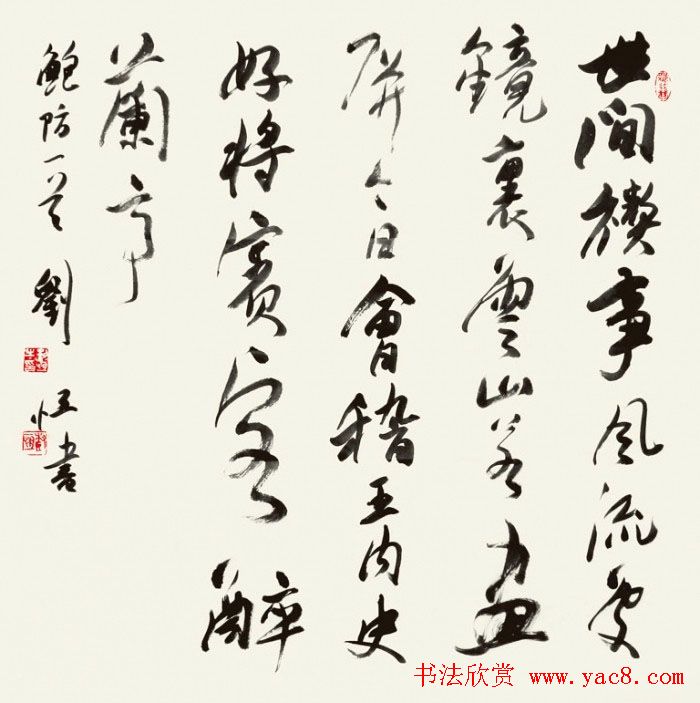 世間禊事風流處
鏡裏雲山若畫
屏今日會稽王內史
好將賓客醉
蘭亭
鮑防一首 劉恒書
书法欣赏 www.yac8.com